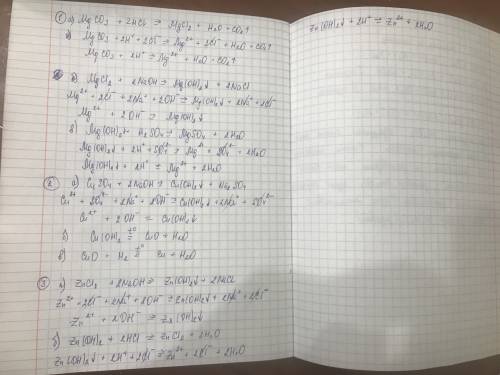 ① а) MgCO3 + 2HCl ⇒ MgCl2 + H2O + CO2↑
MgCO3 + 2H⁺ + 2Cl⁻ ⇒ Mg²⁺ + 2Cl⁻ + H2O + CO2↑
MgCO3 + 2H⁺ ⇒ Mg²⁺ + H2O + CO2↑
MgCl2 + 2NaOH ⇒ Mg(OH)2↓ + 2NaCl
Mg²⁺ + 2Cl⁻ + 2Na⁺ + 2OH⁻ ⇒ Mg(OH)2↓ + 2Na⁺ + 2Cl⁻
Mg²⁺ + 2OH⁻ ⇒ Mg(OH)2↓
б) Mg(OH)2 + H2SO4 ⇒ MgSO4 + 2H2O
Mg(OH)2↓ + 2H⁺ + SO4²⁻ ⇒ Mg²⁺ + SO4²⁻ + 2H2O
Mg(OH)2↓ + 2H⁺ ⇒ Mg²⁺ + 2H2O
② а) CuSO4 + 2NaOH ⇒ Cu(OH)2↓ + Na2SO4
Cu²⁺ + SO4²⁻ + 2Na⁺ + 2OH⁻ ⇒ Cu(OH)2↓ + 2Na⁺ + SO4²⁻
Cu²⁺ + 2OH⁻ = Cu(OH)2↓
б) Cu(OH)2 =t° CuO + H2O
в) CuO + H2 =t° Cu + H2O
③ а) ZnCl2 + 2NaOH ⇒ Zn(OH)2↓ + 2NaCl
Zn²⁺ + 2Cl⁻ + 2Na⁺ + 2OH⁻ ⇒ Zn(OH)2↓ + 2Na⁺ + 2Cl⁻
Zn²⁺ + 2OH⁻ ⇒ Zn(OH)2↓
б) Zn(OH)2 + 2HCl ⇒ ZnCl2 + 2H2O
Zn(OH)2↓ + 2H⁺ + 2Cl⁻ ⇒ Zn²⁺ + 2Cl⁻ + 2H2O
Zn(OH)2↓ + 2H⁺ ⇒ Zn²⁺ + 2H2O